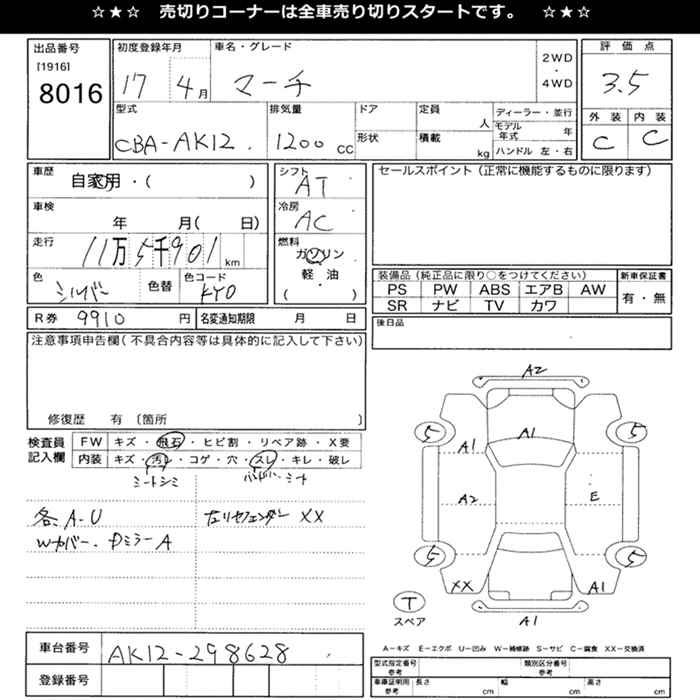 ☆★☆ 売切りコーナーは全車売り切りスタートです。 ☆★☆
出品番号
[1916]
8016
初度登録年月
17 4月
車名・グレード
マーチ
2WD
・
4WD
評価点
3.5
外装 内装
C C
型式
CBA-AK12
排気量
1200 CC
ドア
形状
定員
人
積載
kg
ディーラー・並行
モデル年式 年
ハンドル 左・右
車歴
自家用・( )
車検
年 月( 日)
走行
11万5千901 km
色
シルバー
色替
色コード
KY0
シフト
AT
冷房
AC
燃料
ガソリン
軽・油
( )
セールスポイント(正常に機能するものに限ります)
装備品(純正品に限り○をつけてください)
PS PW ABS エアB AW
SR ナビ TV カワ
新車保証書
有・無
R券 9910 円
名変通知期限 月 日
後日品
注意事項申告欄(不具合内容等は具体的に記入して下さい)
修復歴 有 〔箇所 〕
検査員
記入欄
FW キズ・飛石・ヒビ割・リペア跡・X要
内装 キズ・汚レ・コゲ・穴・スレ・キレ・破レ
シートシミ
シート
各A-U
Wカバー・Dミラー A
左リヤフェンダー XX
A2
5
5
A1
A1
A2
E
5
5
XX
A1
A1
T
スペア
A-キズ E-エクボ U-凹み W-補修跡 S-サビ C-腐食 XX-交換済
車台番号
AK12-298628
登録番号
型式指定番号
参考
類別区分番号
参考
車庫証明用
参考
長さ cm
幅 cm
高さ cm